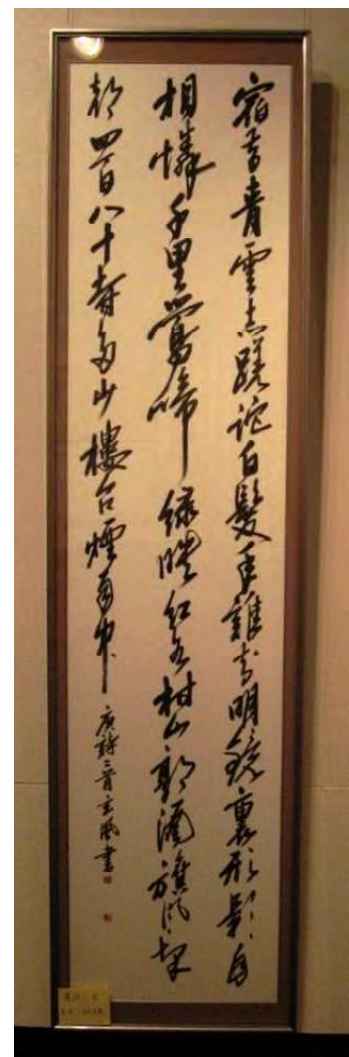 宿昔青雲志蹉跎白髮年誰知明鏡裏形影自
相憐千里鶯啼綠映紅水村山郭酒旗風南
朝四百八十寺多少樓台煙雨中 唐詩二首玄風書